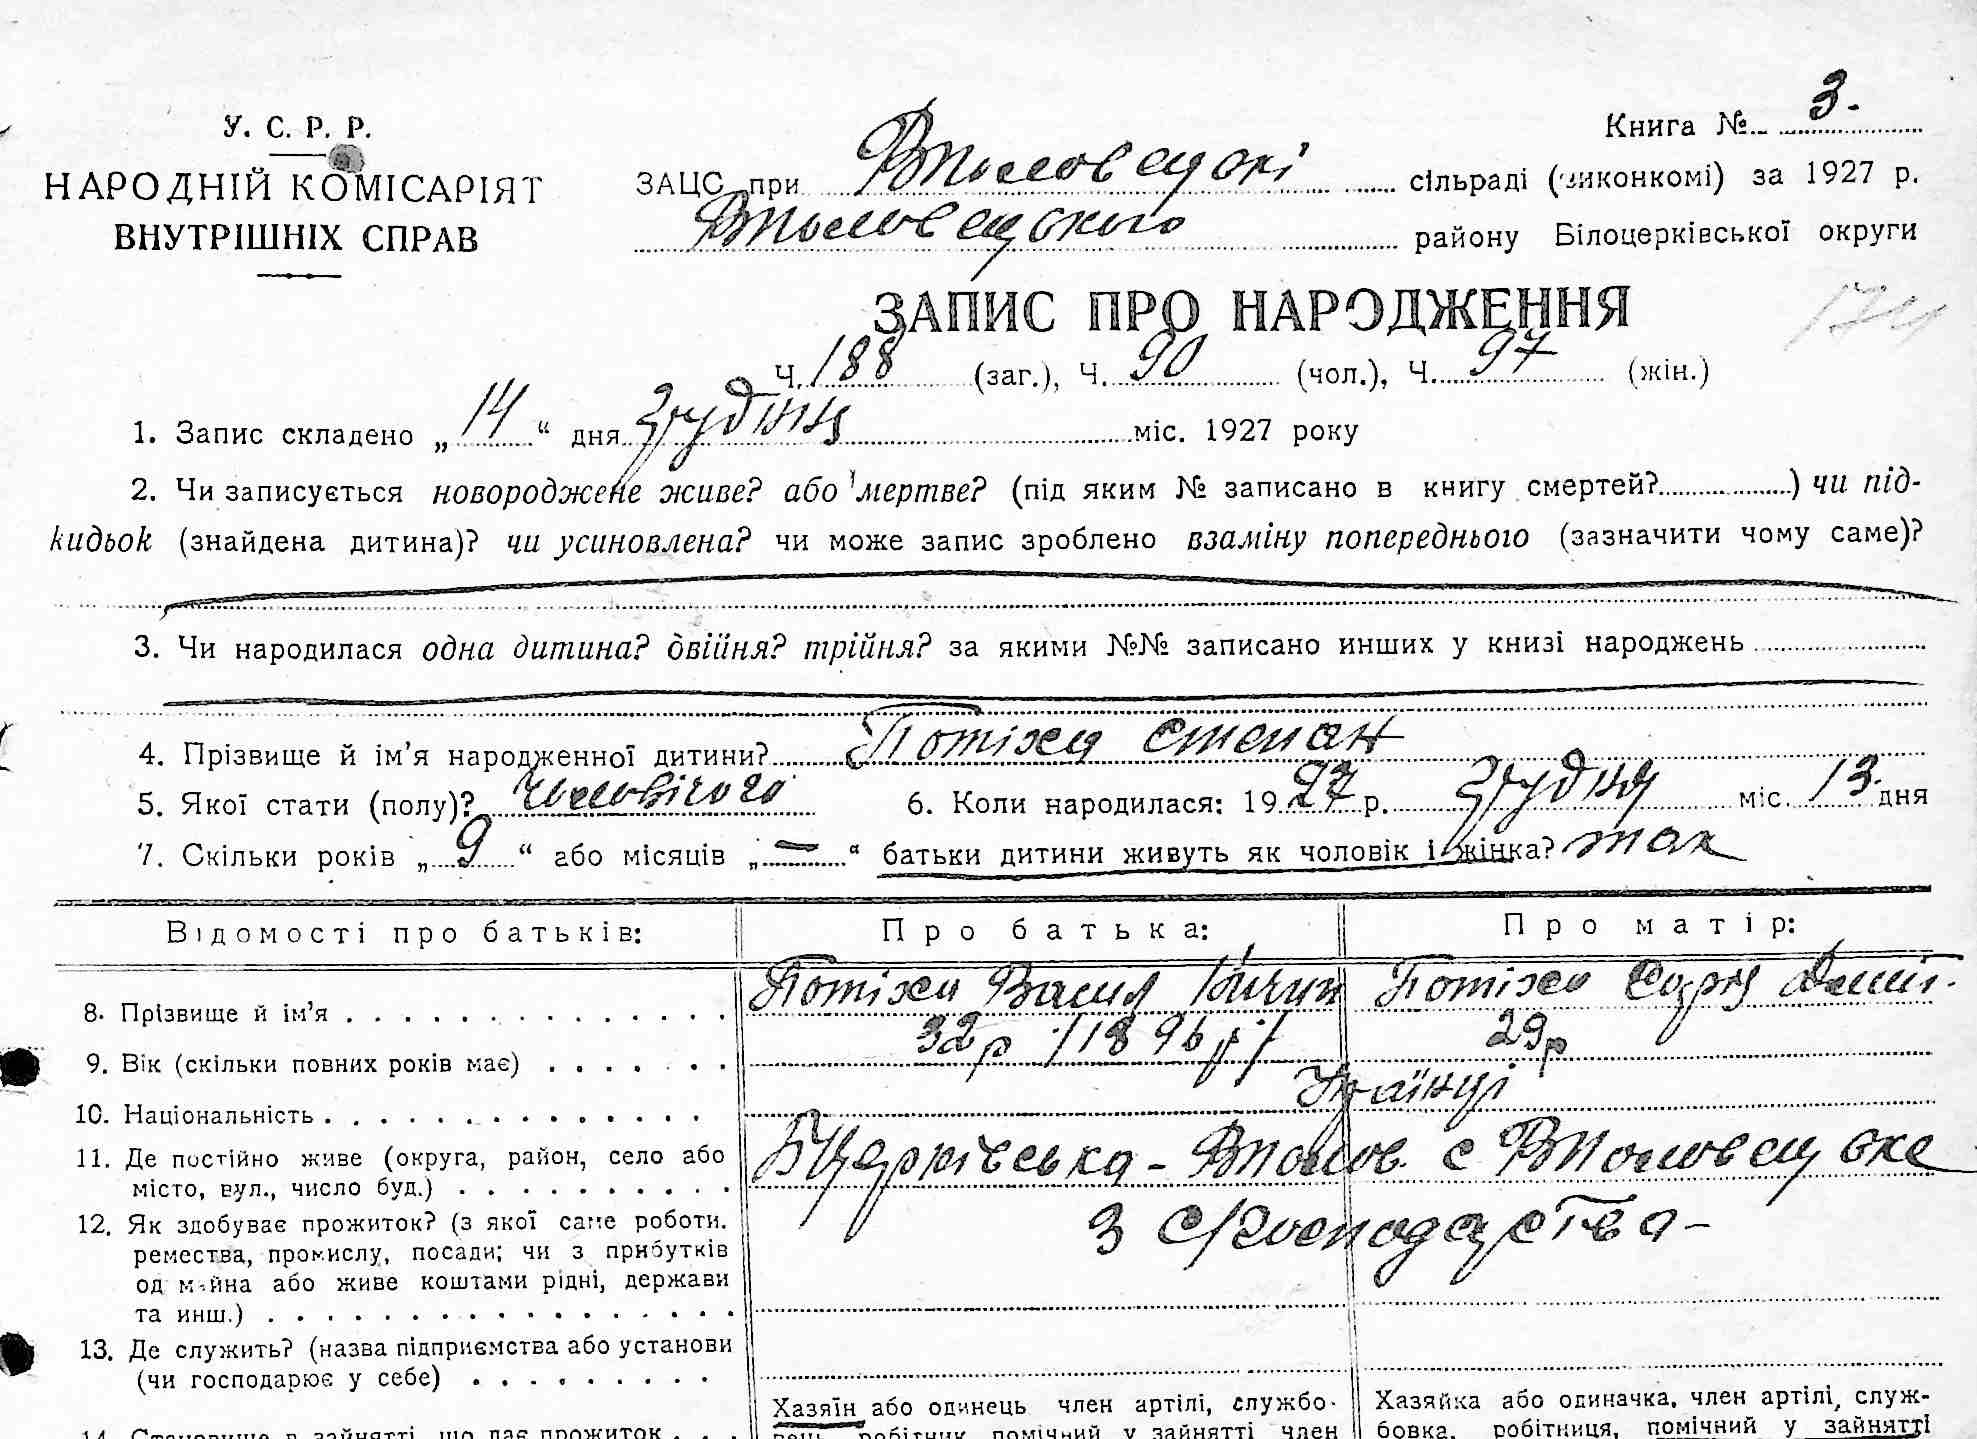 Книга № 3.
У. С. Р. Р.
НАРОДНІЙ КОМІСАРІЯТ
ВНУТРІШНІХ СПРАВ
ЗАЦС при сільраді (виконкомі) за 1927 р.
району Білоцерківської округи
ЗАПИС ПРО НАРОДЖЕННЯ
Ч. 188 (заг.), Ч. 90 (чол.), Ч. 97 (жін.)
1. Запис складено „ 14 “ дня грудня міс. 1927 року
2. Чи записується новороджене живе? або мертве? (під яким № записано в книгу смертей? ) чи під-
кидьок (знайдена дитина)? чи усиновлена? чи може запис зроблено взаміну попереднього (зазначити чому саме)?
3. Чи народилася одна дитина? двійня? трійня? за якими №№ записано инших у книзі народжень
4. Прізвище й ім’я народженної дитини? Потіха Степан
5. Якої стати (полу)? чоловічого 6. Коли народилася: 19 27 р. грудня міс. 13 дня
7. Скільки років „ 9 “ або місяців „ — “ батьки дитини живуть як чоловік і жінка? так
Відомості про батьків: Про батька: Про матір:
8. Прізвище й ім’я Потіха Васил Потіха
9. Вік (скільки повних років має) 32 р /1896 р./ 29 р
10. Національність Українці
11. Де постійно живе (округа, район, село або
місто, вул., число буд.) Б Церківська - с
12. Як здобуває прожиток? (з якої саме роботи,
ремества, промислу, посади; чи з прибутків
од майна або живе коштами рідні, держави
та инш.) З с/господарства -
13. Де служить? (назва підприємства або установи
(чи господарює у себе)
Хазяїн або одинець член артілі, службо- Хазяйка або одиначка, член артілі, служ-
14. Становище в зайнятті, що дає прожиток робітник помічний у зайнятті член бовка, робітниця, помічний у зайнятті